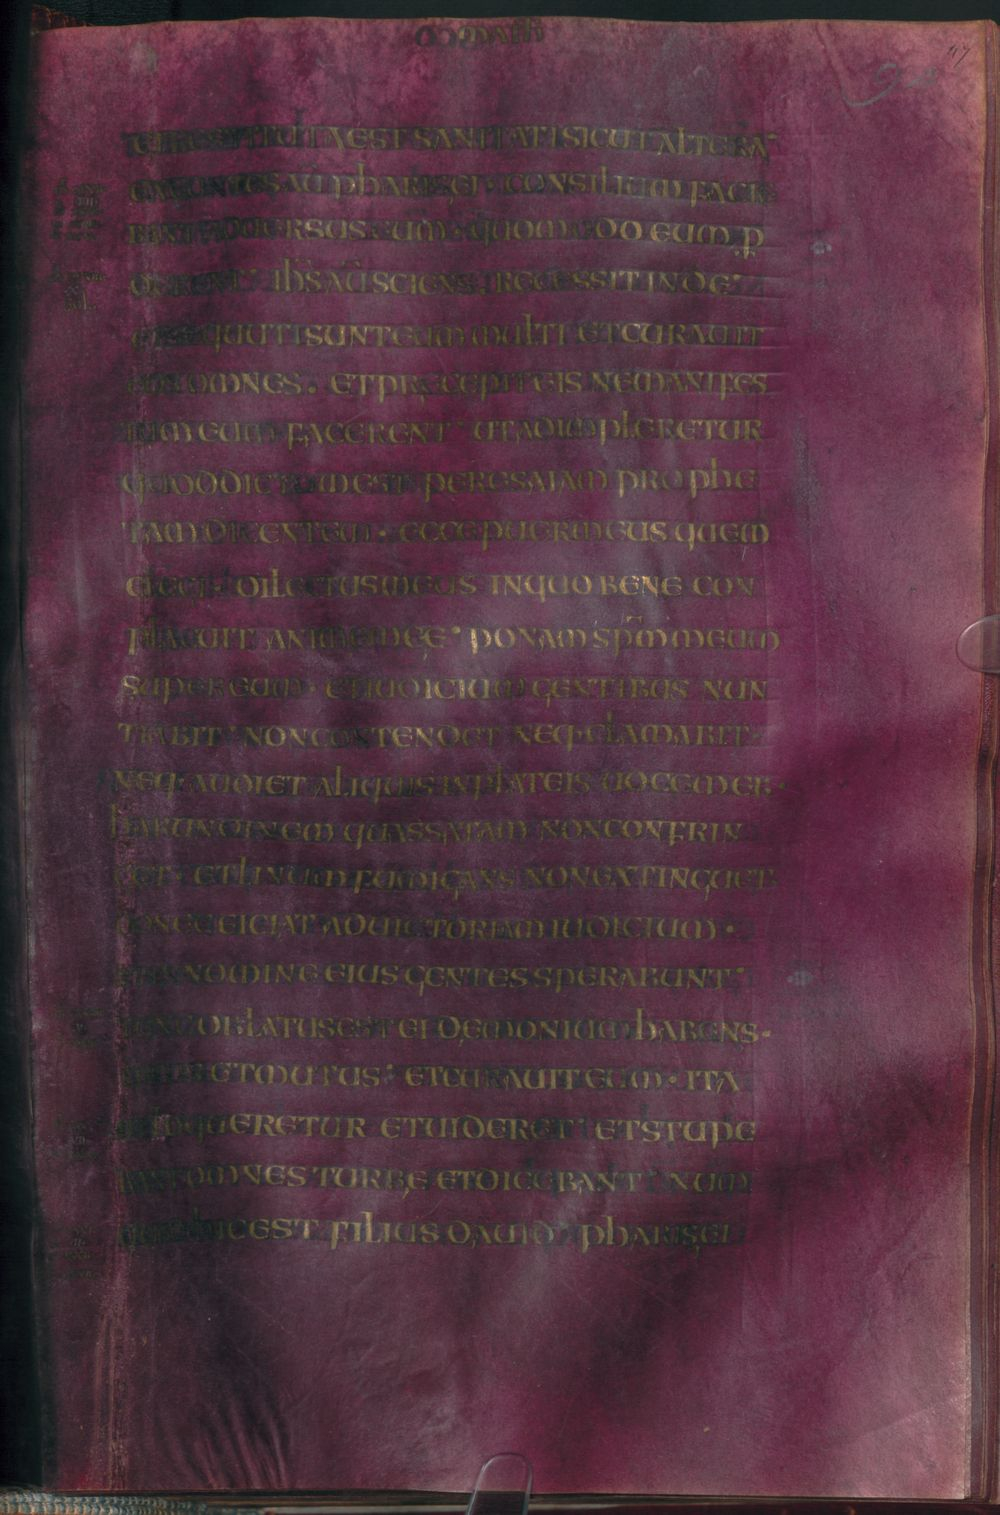 MATH
ET RESTITUTA EST SANITATI SICUT ALTERA
EXEUNTES AŪ PHARISEI · CONSILIUM FACIE
BANT ADVERSUS EUM · QUOMODO EUM P
DERENT · IHS AŪ SCIENS · RECESSIT INDE ·
ET SEQUUTI SUNT EUM MULTI ET CURAUIT
EOS OMNES · ET PRECEPIT EIS NE MANIFES
TUM EUM FACERENT · UT ADIMPLERETUR
QUOD DICTUM EST PER ESAIAM PROPHE
TAM DICENTEM · ECCE PUER MEUS QUEM
ELEGI · DILECTUS MEUS IN QUO BENE CON
PLACUIT ANIME MEE · PONAM SPM MEUM
SUPER EUM · ET IUDICIUM GENTIBUS NUN
TIABIT · NON CONTENDET NEQ· CLAMABIT ·
NEQ· AUDIET ALIQUIS IN PLATEIS UOCEM EIUS ·
HARUNDINEM QUASSATAM NON CONFRIN
GET · ET LINUM FUMIGANS NON EXTINGUET ·
DONEC EICIAT AD UICTORIAM IUDICIUM ·
ET IN NOMINE EIUS GENTES SPERABUNT ·
TUNC OBLATUS EST EI DEMONIUM HABENS ·
CECUS ET MUTUS · ET CURAUIT EUM · ITA
UT LOQUERETUR ET UIDERET · ET STUPE
BANT OMNES TURBE ET DICEBANT · NUM
QUID HIC EST FILIUS DAUID · PHARISEI